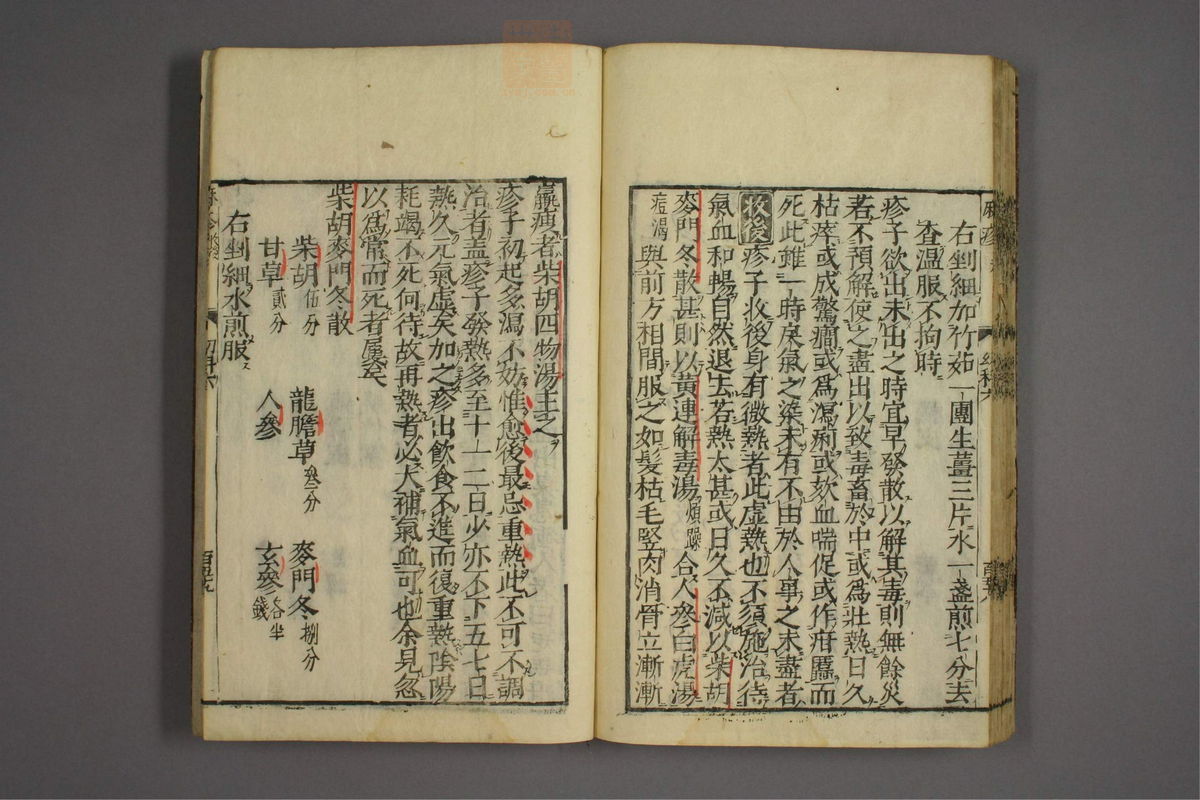 右剉細加竹茹一團生薑三片水一盞煎七分去
查温服不拘時
疹子欲出未出之時宜早發散以解其毒則無餘災
若不預解使之盡出以致毒畜於中或爲壯熱日久
枯瘁或成驚癇或爲瀉痢或欬血喘促或作疳䘌而
死此雖一時戾氣之染未有不由於人事之未盡者
收後疹子收後身有微熱者此虛熱也不須施治待
氣血和暢自然退去若熱太甚或日久不減以柴胡
麥門冬散甚則以黃連解毒湯煩躁合人參白虎湯
痘渴與前方相間服之如髮枯毛竪肉消骨立漸漸
羸瘦者柴胡四物湯主之
疹子初起多瀉不妨惟愈後最忌重熱此不可不調
治者盖疹子發熱多至十一二日少亦不下五七日
熱久元氣虛矣加之疹出飲食不進而復重熱陰陽
耗竭不死何待故再熱者必大補氣血可也余見忽
以爲常而死者屢矣
柴胡麥門冬散
柴胡伍分 龍膽草叁分 麥門冬捌分
甘草貳分 人參 玄參各半錢
右剉細水煎服